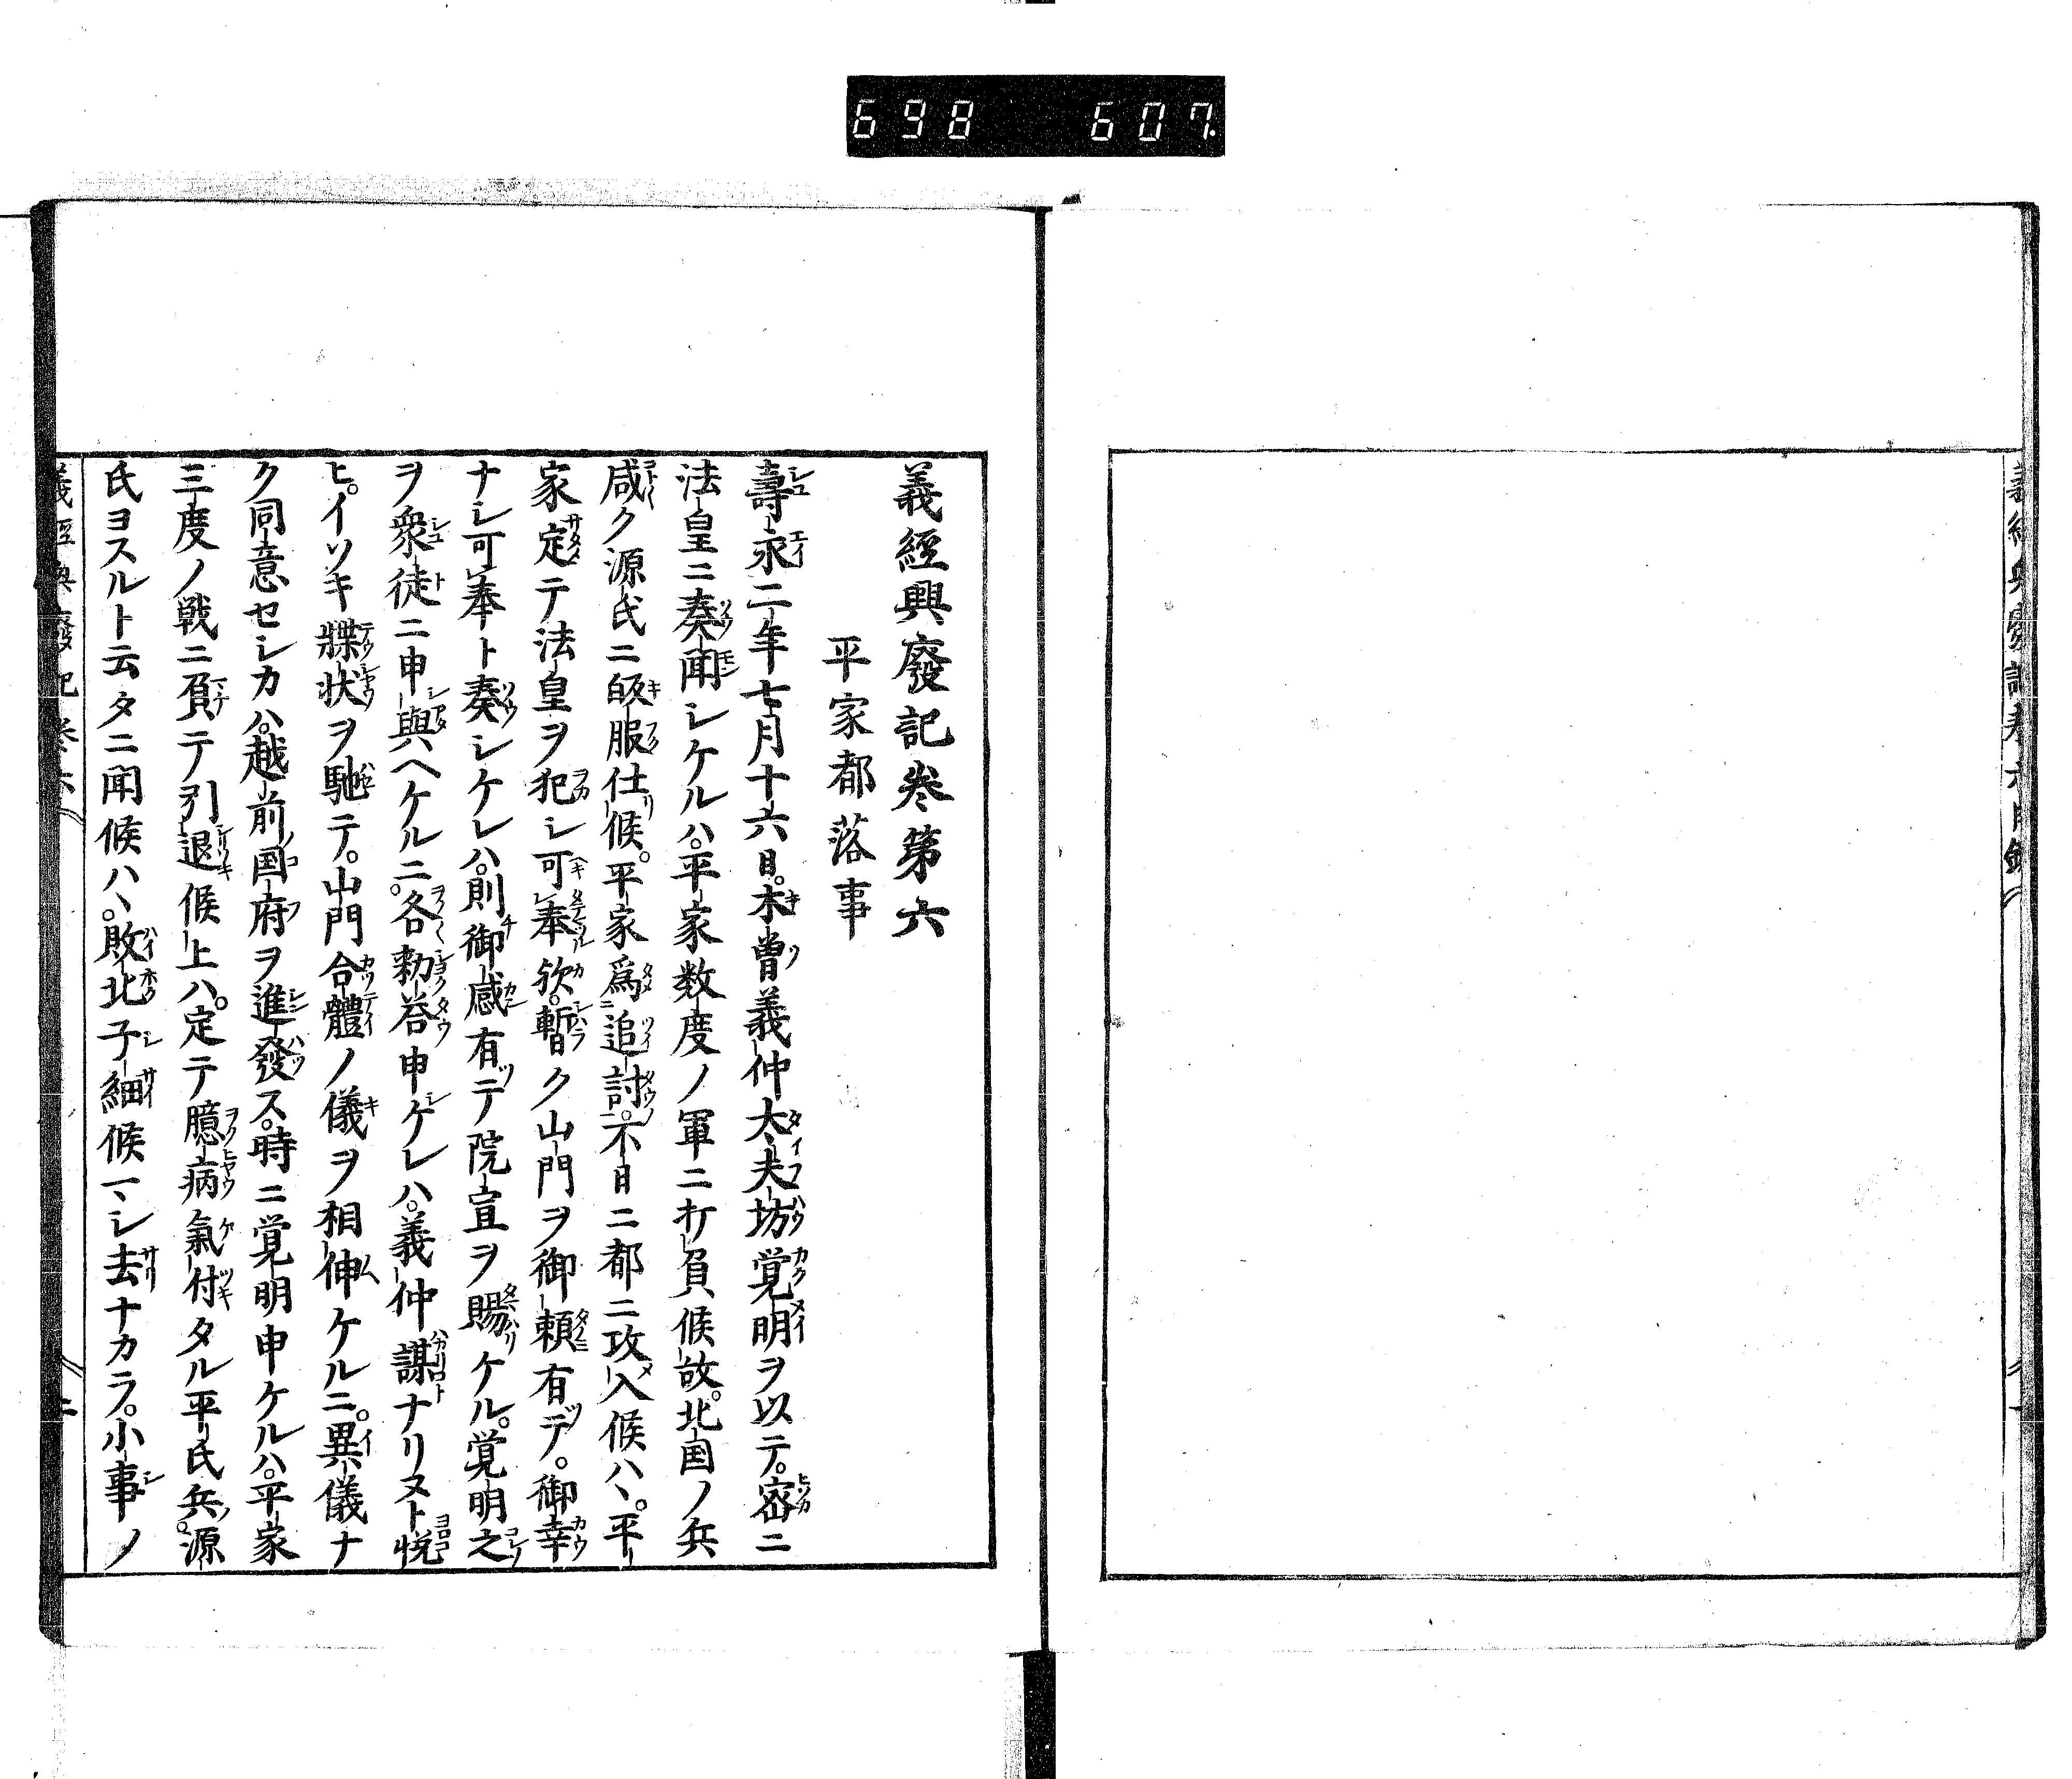 698 607
義經興廢記卷第六
平家都落事
壽永二年七月十六日。木曽義仲大夫坊覚明ヲ以テ。密ニ
法皇ニ奏聞シケルハ。平家数度ノ軍ニ打負候故。北国ノ兵
咸ク源氏ニ皈服仕候。平家為追討。不日ニ都ニ攻入候ハヽ。平
家定テ法皇ヲ犯シ可奉欤。暫ク山門ヲ御頼有テ。御幸
ナシ可奉ト奏シケレハ。則御感有テ院宣ヲ賜ケル。覚明之
ヲ衆徒ニ申與ヘケルニ。各勅荅申ケレハ。義仲謀ナリヌト悦
ヒ。イソキ牒状ヲ馳テ。山門合體ノ儀ヲ相伸ケルニ。異儀ナ
ク同意セシカハ。越前国府ヲ進發ス。時ニ覚明申ケルハ。平家
三度ノ戦ニ負テ引退候上ハ。定テ臆病氣付タル平氏兵。源
氏ヨスルト云タニ聞候ハヽ。敗北子細候マシ去ナカラ。小事ノ